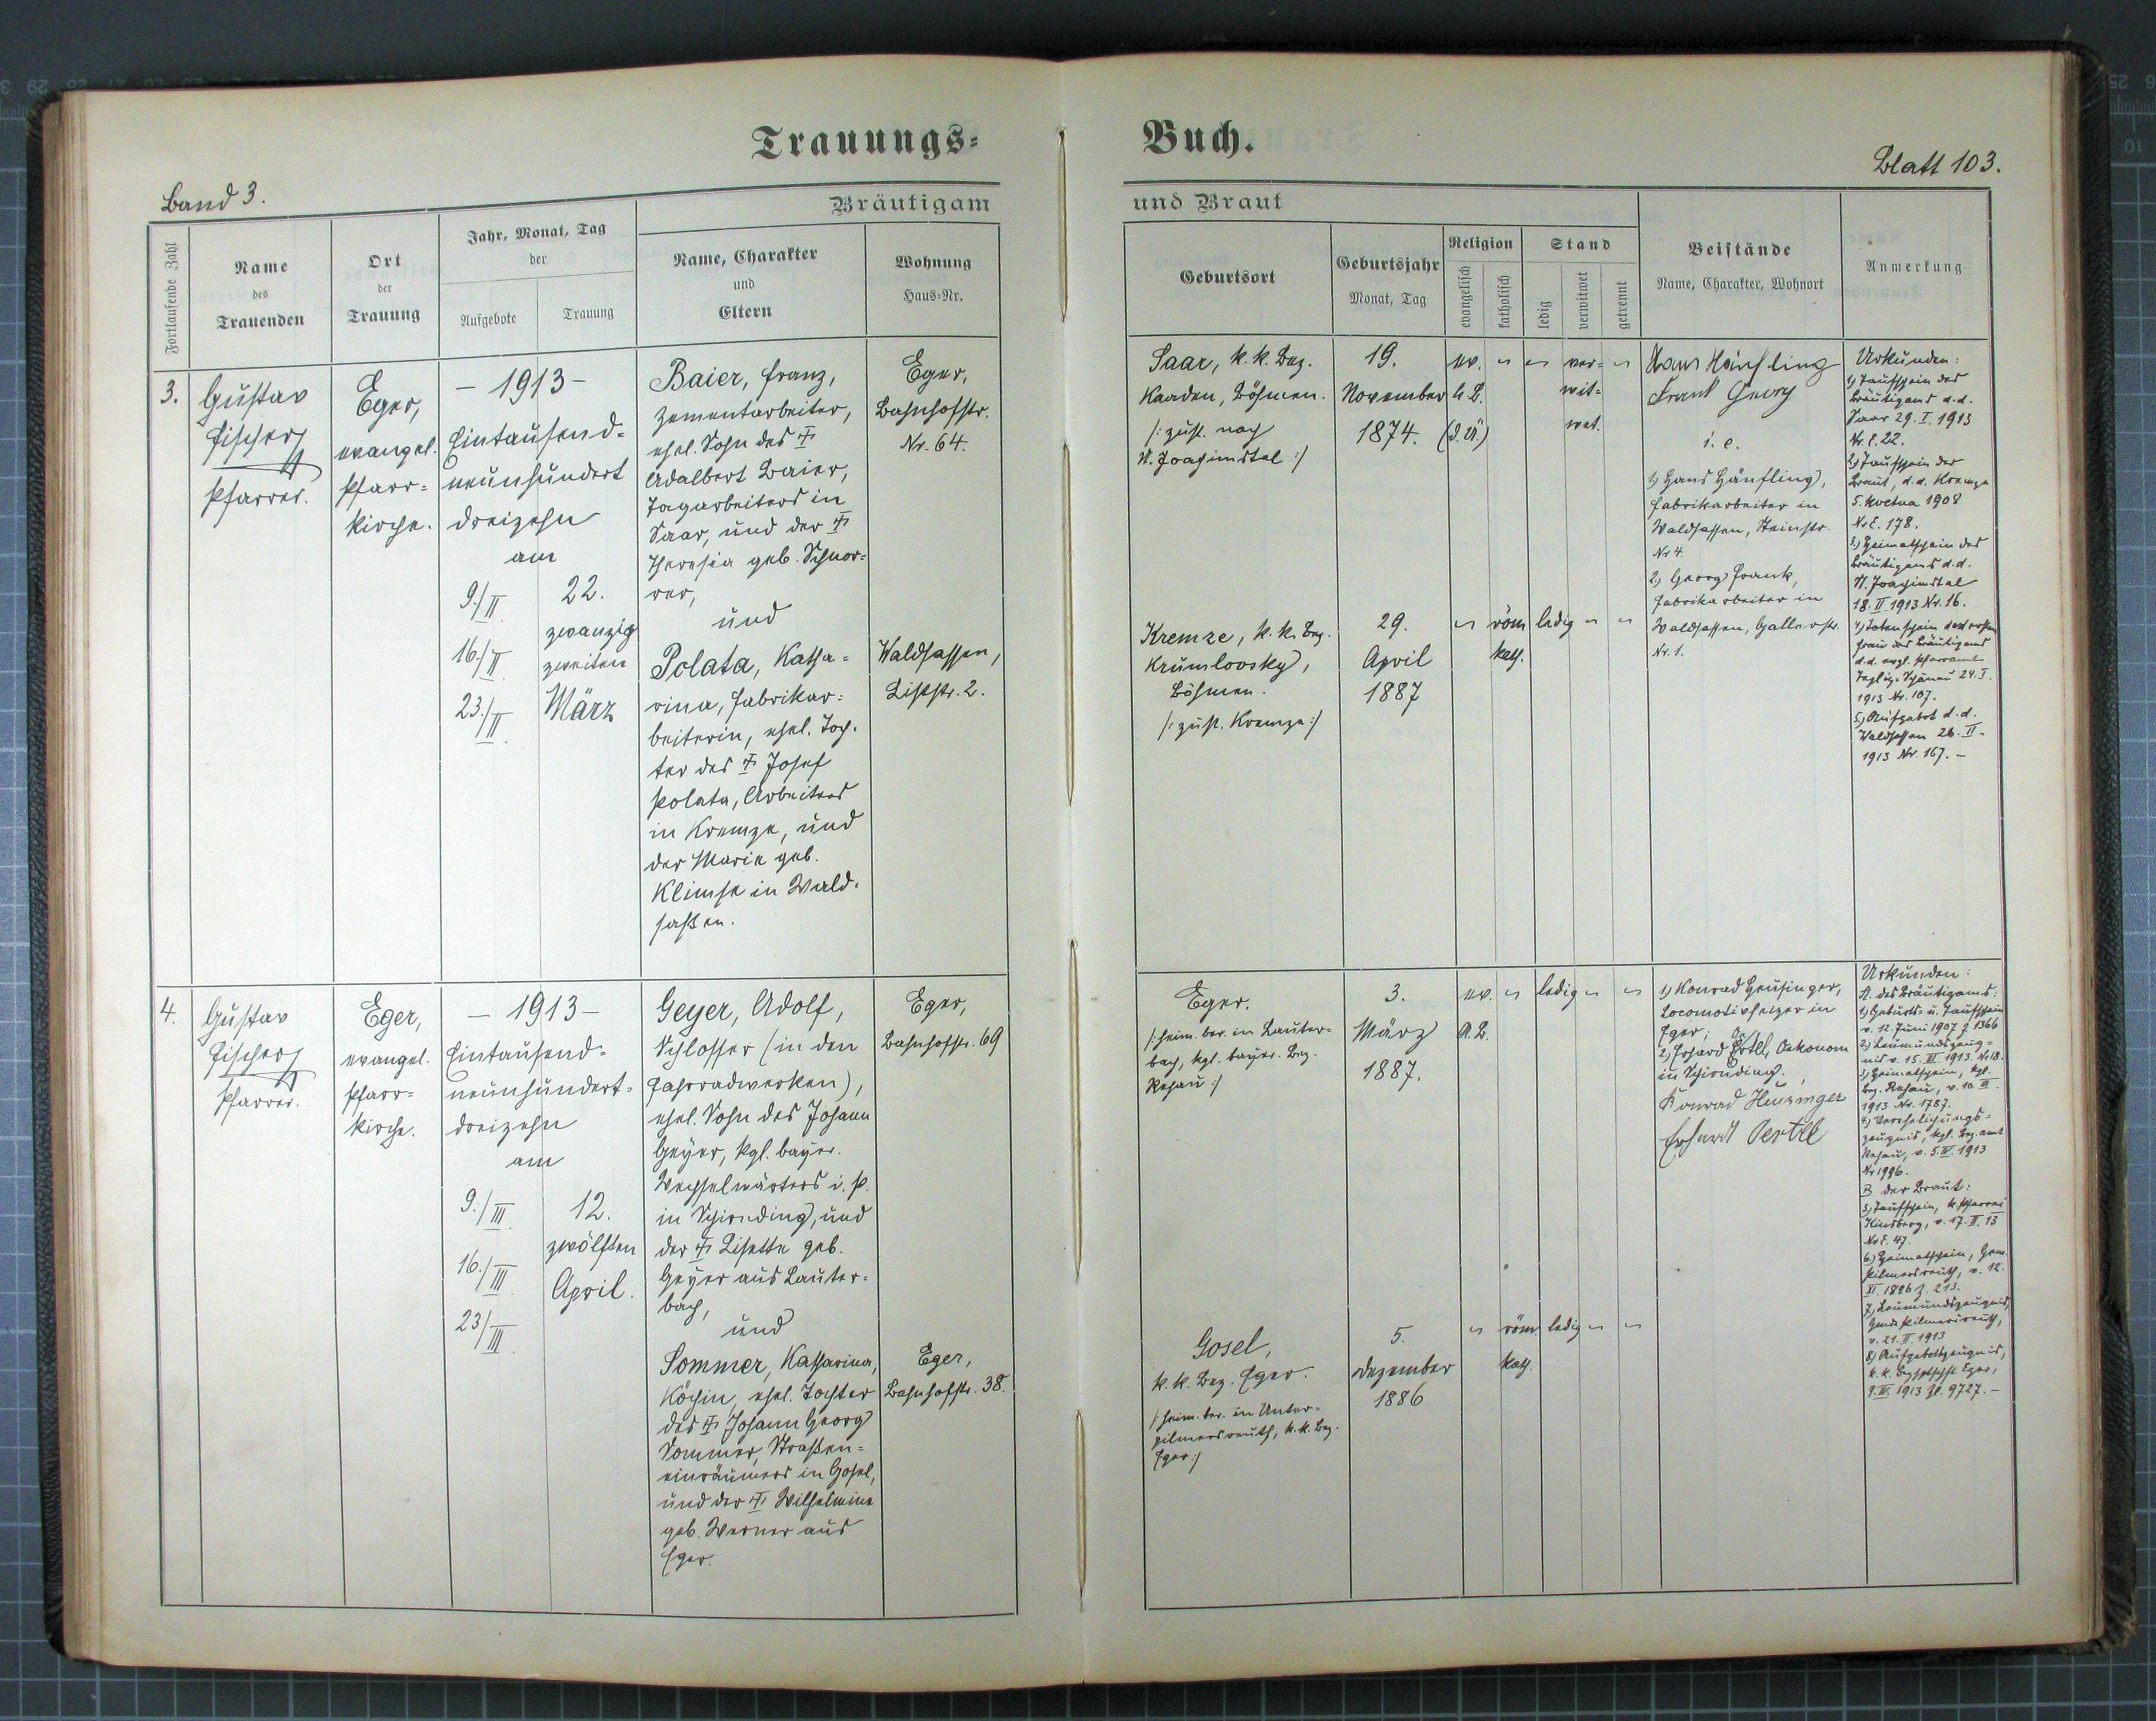 Trauungs=
Buch.
Band 3.
Blatt 103.
Bräutigam
und Braut
Fortlaufende Zahl
Name
des
Trauenden
Ort
der
Trauung
Jahr, Monat, Tag
der
Aufgebote
Trauung
Name, Charakter
und
Eltern
Wohnung
Haus=Nr.
Geburtsort
Geburtsjahr
Monat, Tag
Religion
evangelisch
katholisch
Stand
ledig
verwitwet
getrennt
Beistände
Name, Charakter, Wohnort
Anmerkung
3.
Gustav
Fischer
Pfarrer.
Eger,
evangel.
Pfarr=
kirche.
– 1913 –
Eintausend=
neunhundert
dreizehn
am
9./II.
16./II.
23./II.
22.
zwanzig
zweiten
März
Baier, Franz,
Zementarbeiter,
ehel. Sohn des
Adalbert Baier,
Tagarbeiters in
Saar, und der
Theresia geb. Schnor=
rer,
und
Polata, Katha=
rina, Fabrikar=
beiterin, ehel. Toch=
ter des Josef
Polata, Arbeiters
in Kremze, und
der Marie geb.
Klimse in Wald=
saßen.
Eger,
Bahnhofstr.
Nr. 64.
Waldsassen,
Liststr. 2.
Saar, k. k. Bez.
Kaaden, Böhmen.
/: zust. nach
St. Joachimstal :/
19.
November
1874.
ev.
H. B.
ver=
wit=
wet.
Kremze, k. k. Bez.
Krumlovsky,
Böhmen.
/: zust. Kremze :/
29.
April
1887
röm
kath.
ledig
Hans Hänfling
Frank Georg
i. e.
1) Hans Hänfling,
Fabrikarbeiter in
Waldsassen, Steinstr.
Nr 4.
2) Georg Frank,
Fabrikarbeiter in
Waldsassen,
Nr. 1.
Urkunden:
1) Taufschein des
Bräutigams d. d.
Saar 29. I. 1913
Nr. E. 22.
2) Taufschein der
Braut, d. d. Kremze
5. kvetna 1908
Nr E. 178.
3) Heimatschein des
Bräutigams d. d.
St. Joachimstal
18. II. 1913 Nr. 16.
4) Totenschein der ersten
Frau des Bräutigams
d. d. evgl. Pfarramt
Teplitz-Schönau 24. I.
1913 Nr. 107.
5) Aufgebot d. d.
Waldsassen 26. II.
1913 Nr. 167. –
4.
Gustav
Fischer
Pfarrer.
Eger,
evangel.
Pfarr=
kirche.
– 1913 –
Eintausend=
neunhundert=
dreizehn
am
9./III.
16./III.
23/III.
12.
zwölften
April.
Geyer, Adolf,
Schlosser (in den
Fahrradwerken),
ehel. Sohn des Johann
Geyer, kgl. bayer.
Wechselwärters i. P.
in Schirnding, und
der Lisette geb.
Geyer aus Lauter=
bach,
und
Sommer, Katharina,
Köchin, ehel. Tochter
des Johann Georg
Sommer, Straßen=
einräumers in Gosel,
und der Wilhelmine
geb. Werner aus
Eger.
Eger,
Bahnhofstr. 69
Eger,
Bahnhofstr. 38.
Eger.
/: heim. ber. in Lauter=
bach, kgl. bayer. Bez.
Rehau :/
3.
März
1887.
ev.
A. B.
ledig
Gosel,
k. k. Bez. Eger.
/: heim. ber. in Unter=
pilmersreuth, k. k. Bez.
Eger :/
5.
Dezember
1886
röm.
kath.
ledig
1) Konrad Heusinger,
Locomotivheizer in
Eger;
2) Erhard Örtel, Oekonom
in Schirnding.
Konrad Heusinger
Erhardt Oertel
Urkunden:
A. des Bräutigams:
1) Geburts- u. Taufschein
v. 12. Juni 1907 Z 1366
2) Leumundszeug=
nis v. 15. III. 1913. Nr 18.
3) Heimatschein, kgl.
Bez. Rehau, v. 10. III.
1913 Nr. 1787.
4) Verehelichungs=
zeugnis, kgl. Bez. amt
Rehau, v. 5. IV. 1913
Nr 1996.
B der Braut:
5) Taufschein, k. Pfarrei
Kinsberg, v. 17. II. 13
Nr E. 47.
6) Heimatschein, Gem.
Pilmersreuth, v. 12.
XI. 1896 Z. 213.
7) Leumundszeugnis,
Gmde Pilmersreuth,
v. 21. II. 1913
8) Aufgebotszeugnis,
k. k. Bezhptschft Eger,
9. IV. 1913 Zl. 9727. –